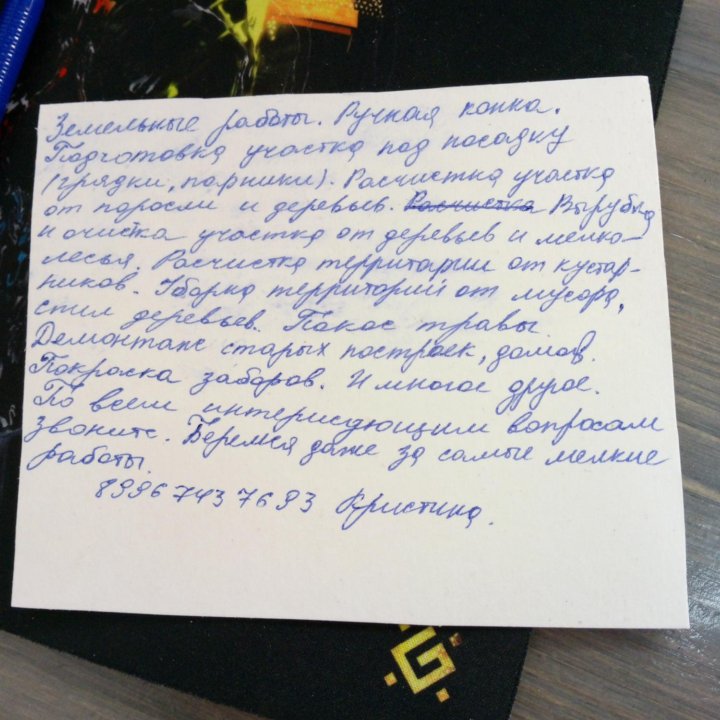 Земельные работы. Ручная копка.
Подготовка участка под посадку
(грядки, парники). Расчистка участка
от поросли и деревьев. Расчистка Вырубка
и очистка участка от деревьев и мелко-
лесья. Расчистка территории от кустар-
ников. Уборка территорий от мусора,
спил деревьев. Покос травы.
Демонтаж старых построек, домов.
Покраска заборов. И многое другое.
По всем интерисующим вопросам
звоните. Беремся даже за самые мелкие
работы.
89967437693 Кристина.
G